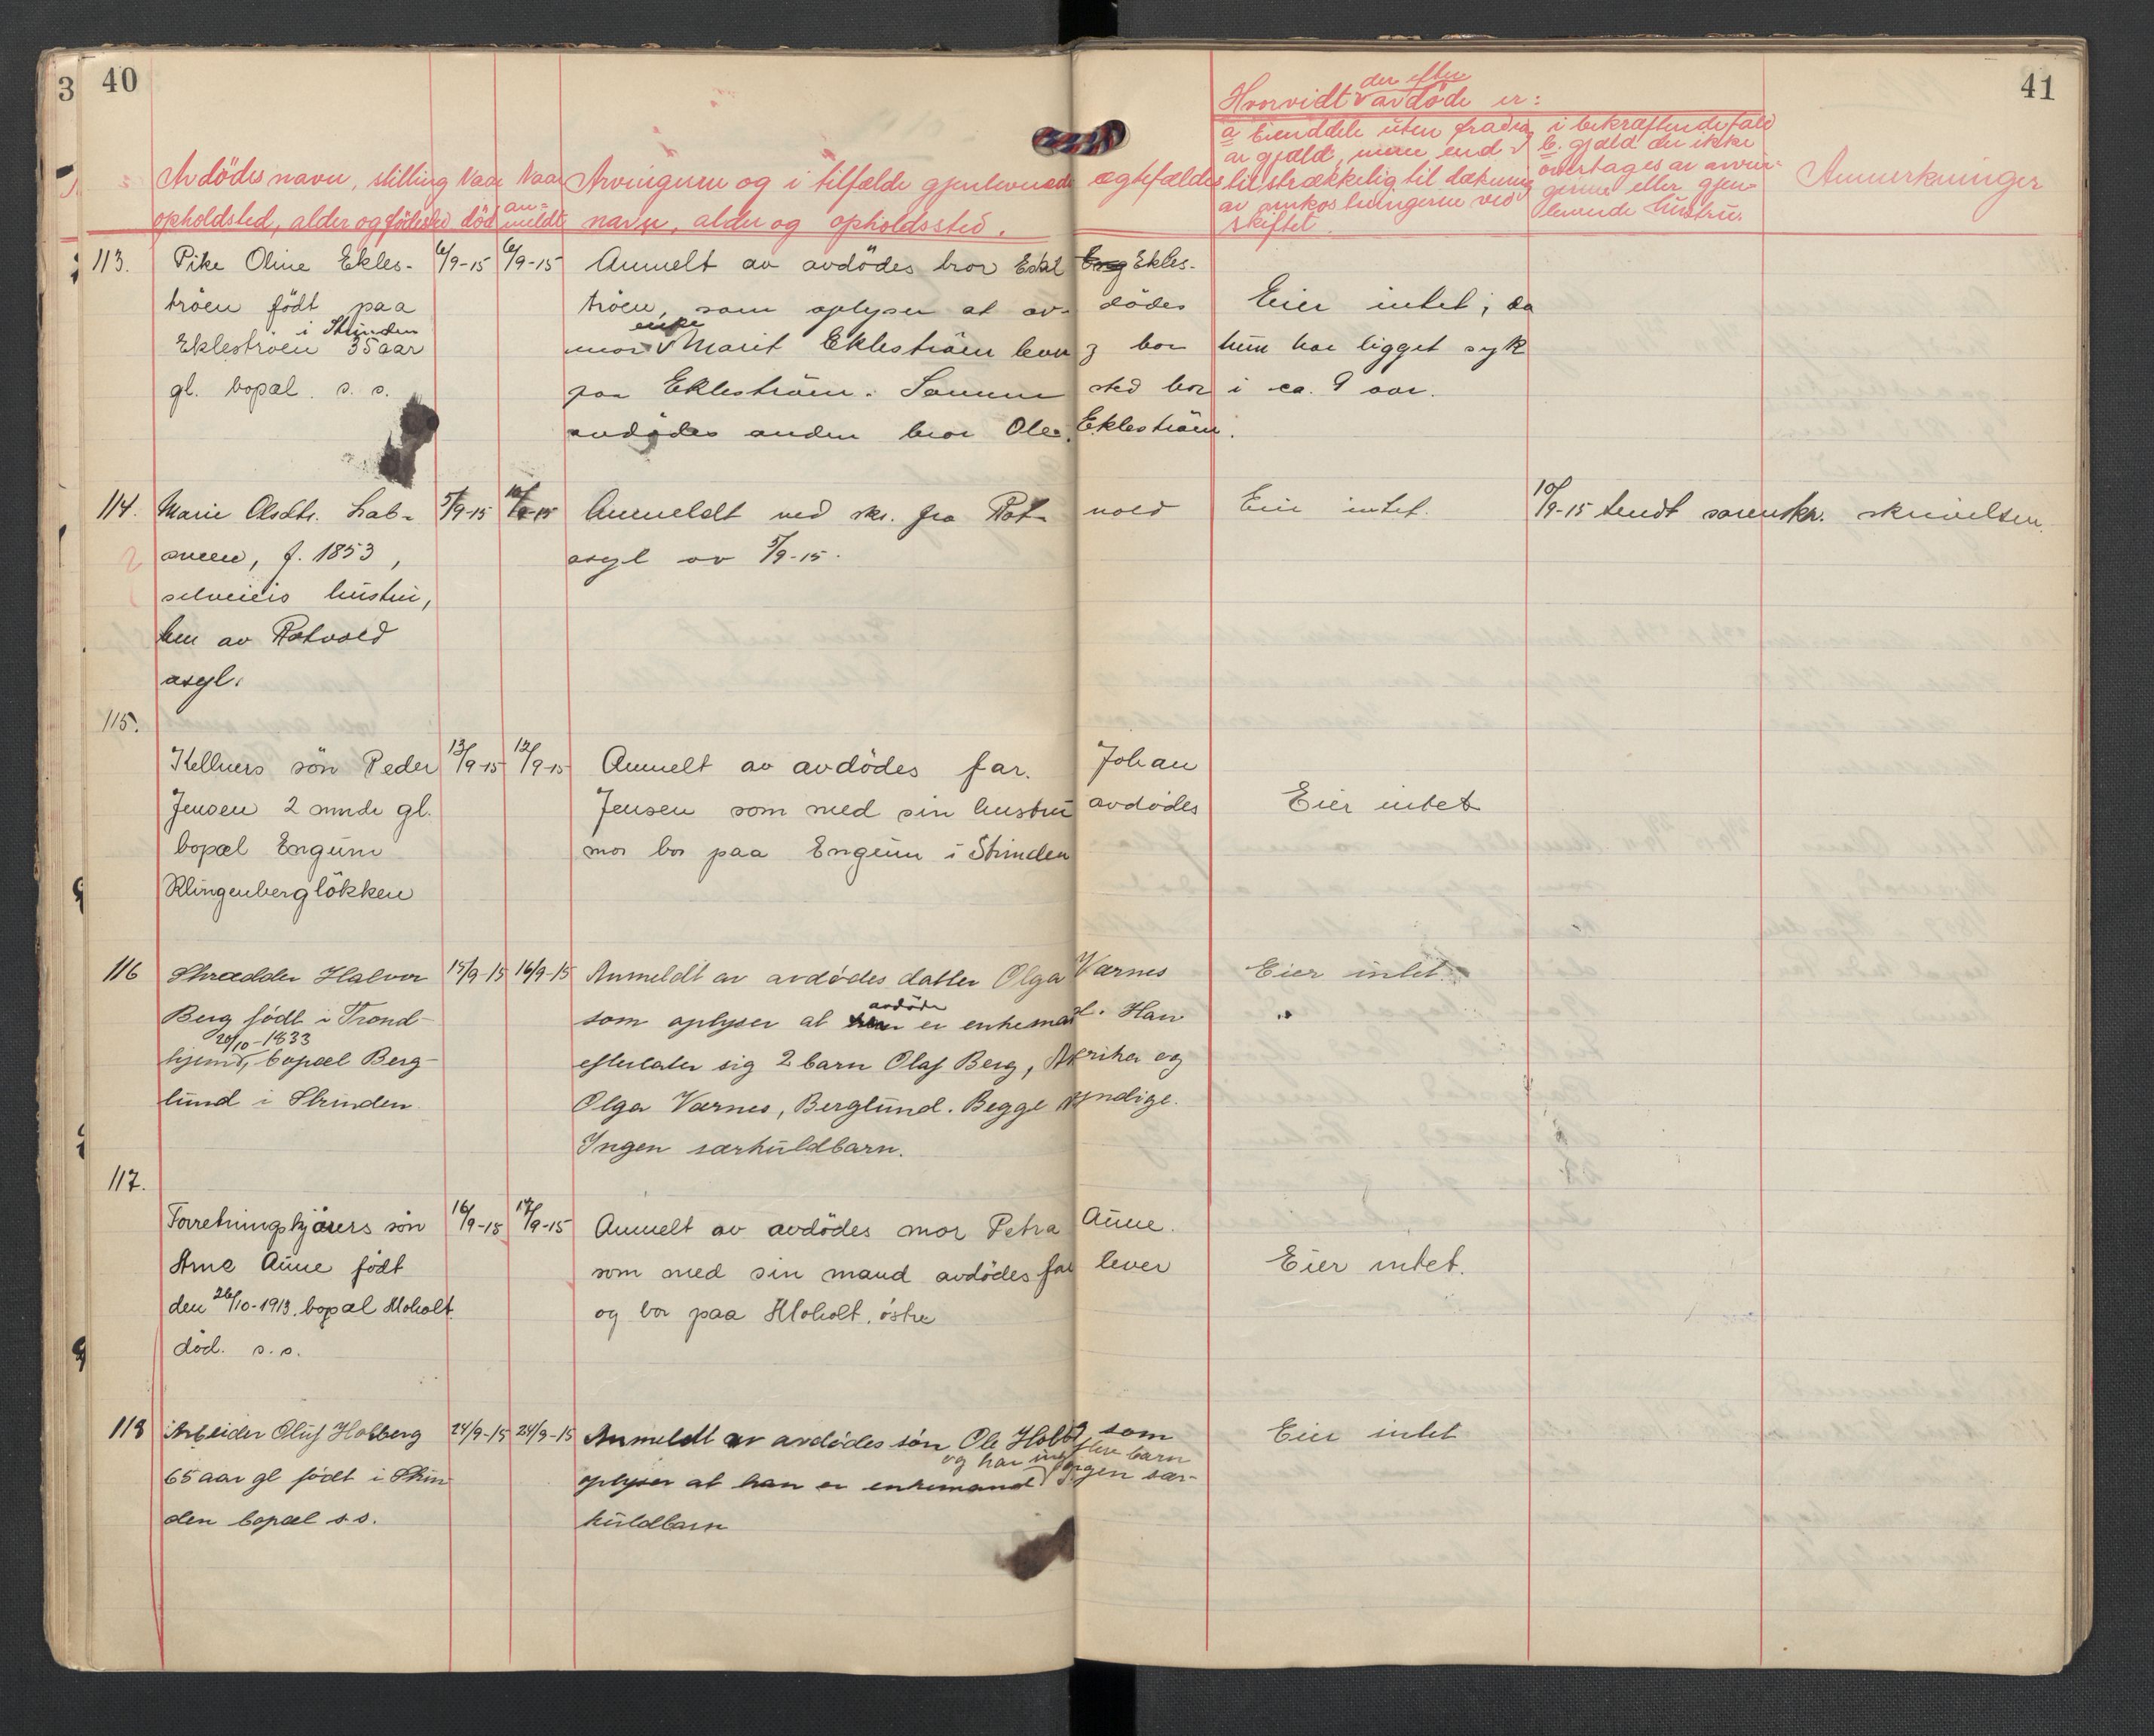 3 40
41
Hvorvidt der efter avdöde er:
Avdödes navn, stilling
opholdsted, alder og födested
Naar död
Naar anmeldt
Arvingerne og i tilfælde gjenlevende ægtefældes
navn, alder og opholdssted.
a Eiendele uten fradrag
av gjæld, mere end
tilstrækkelig til dækning
av omkostningerne ved
skiftet.
i bekræftende fald
b. gjæld der ikke
overtages av arvin-
gerne eller gjen-
levende hustru.
Anmerkninger
113. Pike Oline Ekles- 6/9-15 6/9-15 Anmelt av avdödes bror Ekles-
tröen födt paa tröen, som oplyser at av- dödes Eier intet, da
i Strinden enke
Ekleströen 35 aar mor Marit Ekleströen lever og bor hun har ligget syk
gl. bopæl. s. s. paa Ekleströen. Samme sted bor i ca. 9 aar.
avdödes anden bror Ole Ekleströen.
114. Marie Olsdtr. Lab- 5/9-15 10/9-15 Anmeldt ved skr. fra Rot- vold Eier intet. 10/9-15 sendt sorenskr. skrivelsen.
omeen, f. 1853, asyl av 5/9-15.
selveiers hustru,
lem av Rotvold
asyl.
115.
Kellners sön Peder 13/9-15 12/9-15 Anmelt av avdödes far. Johan
Jensen 2 mndr gl. Jensen som med sin hustru avdödes Eier intet
bopæl Engum mor bor paa Engum i Strinden
Klingenberglökken
116 Skrædder Halvor 15/9-15 16/9-15 Anmeldt av avdödes datter Olga Værnes Eier intet.
Berg födt i Trond- som oplyser at avdöde er enkemand. Han
20/10-1833
hjem, bopæl Berg- efterlater sig 2 barn Olaf Berg, Afrika og
lund i Strinden. Olga Værnes, Berglund. Begge myndige.
Ingen særkuldbarn.
117.
Forretningskjörers sön 16/9-15 17/9-15 Anmelt av avdödes mor Petra Aune.
Arne Aune födt som med sin mand avdödes far lever Eier intet.
den 26/10-1913. bopæl Moholt. og bor paa Moholt, östre
död. s. s.
118 Arbeider Oluf Holberg 24/9-15 24/9-15 Anmeldt av avdödes sön Ole Holb. som Eier intet
og har ing. flere barn
65 aar gl födt i Strin oplyser at han er enkemand Ingen sær-
den bopæl s.s. kuldbarn